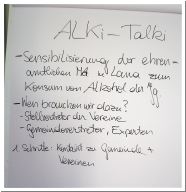 ALKi-Talk
- Sensibilisierung der ehren-
amtlichen zum
Konsum von Alkohol der
- Wen brauchen wir dazu?
- Stellvertreter der Vereine
- Gemeindevertreter, Experten
1. Schritte: Kontakt zu Gemeinde +
Vereinen